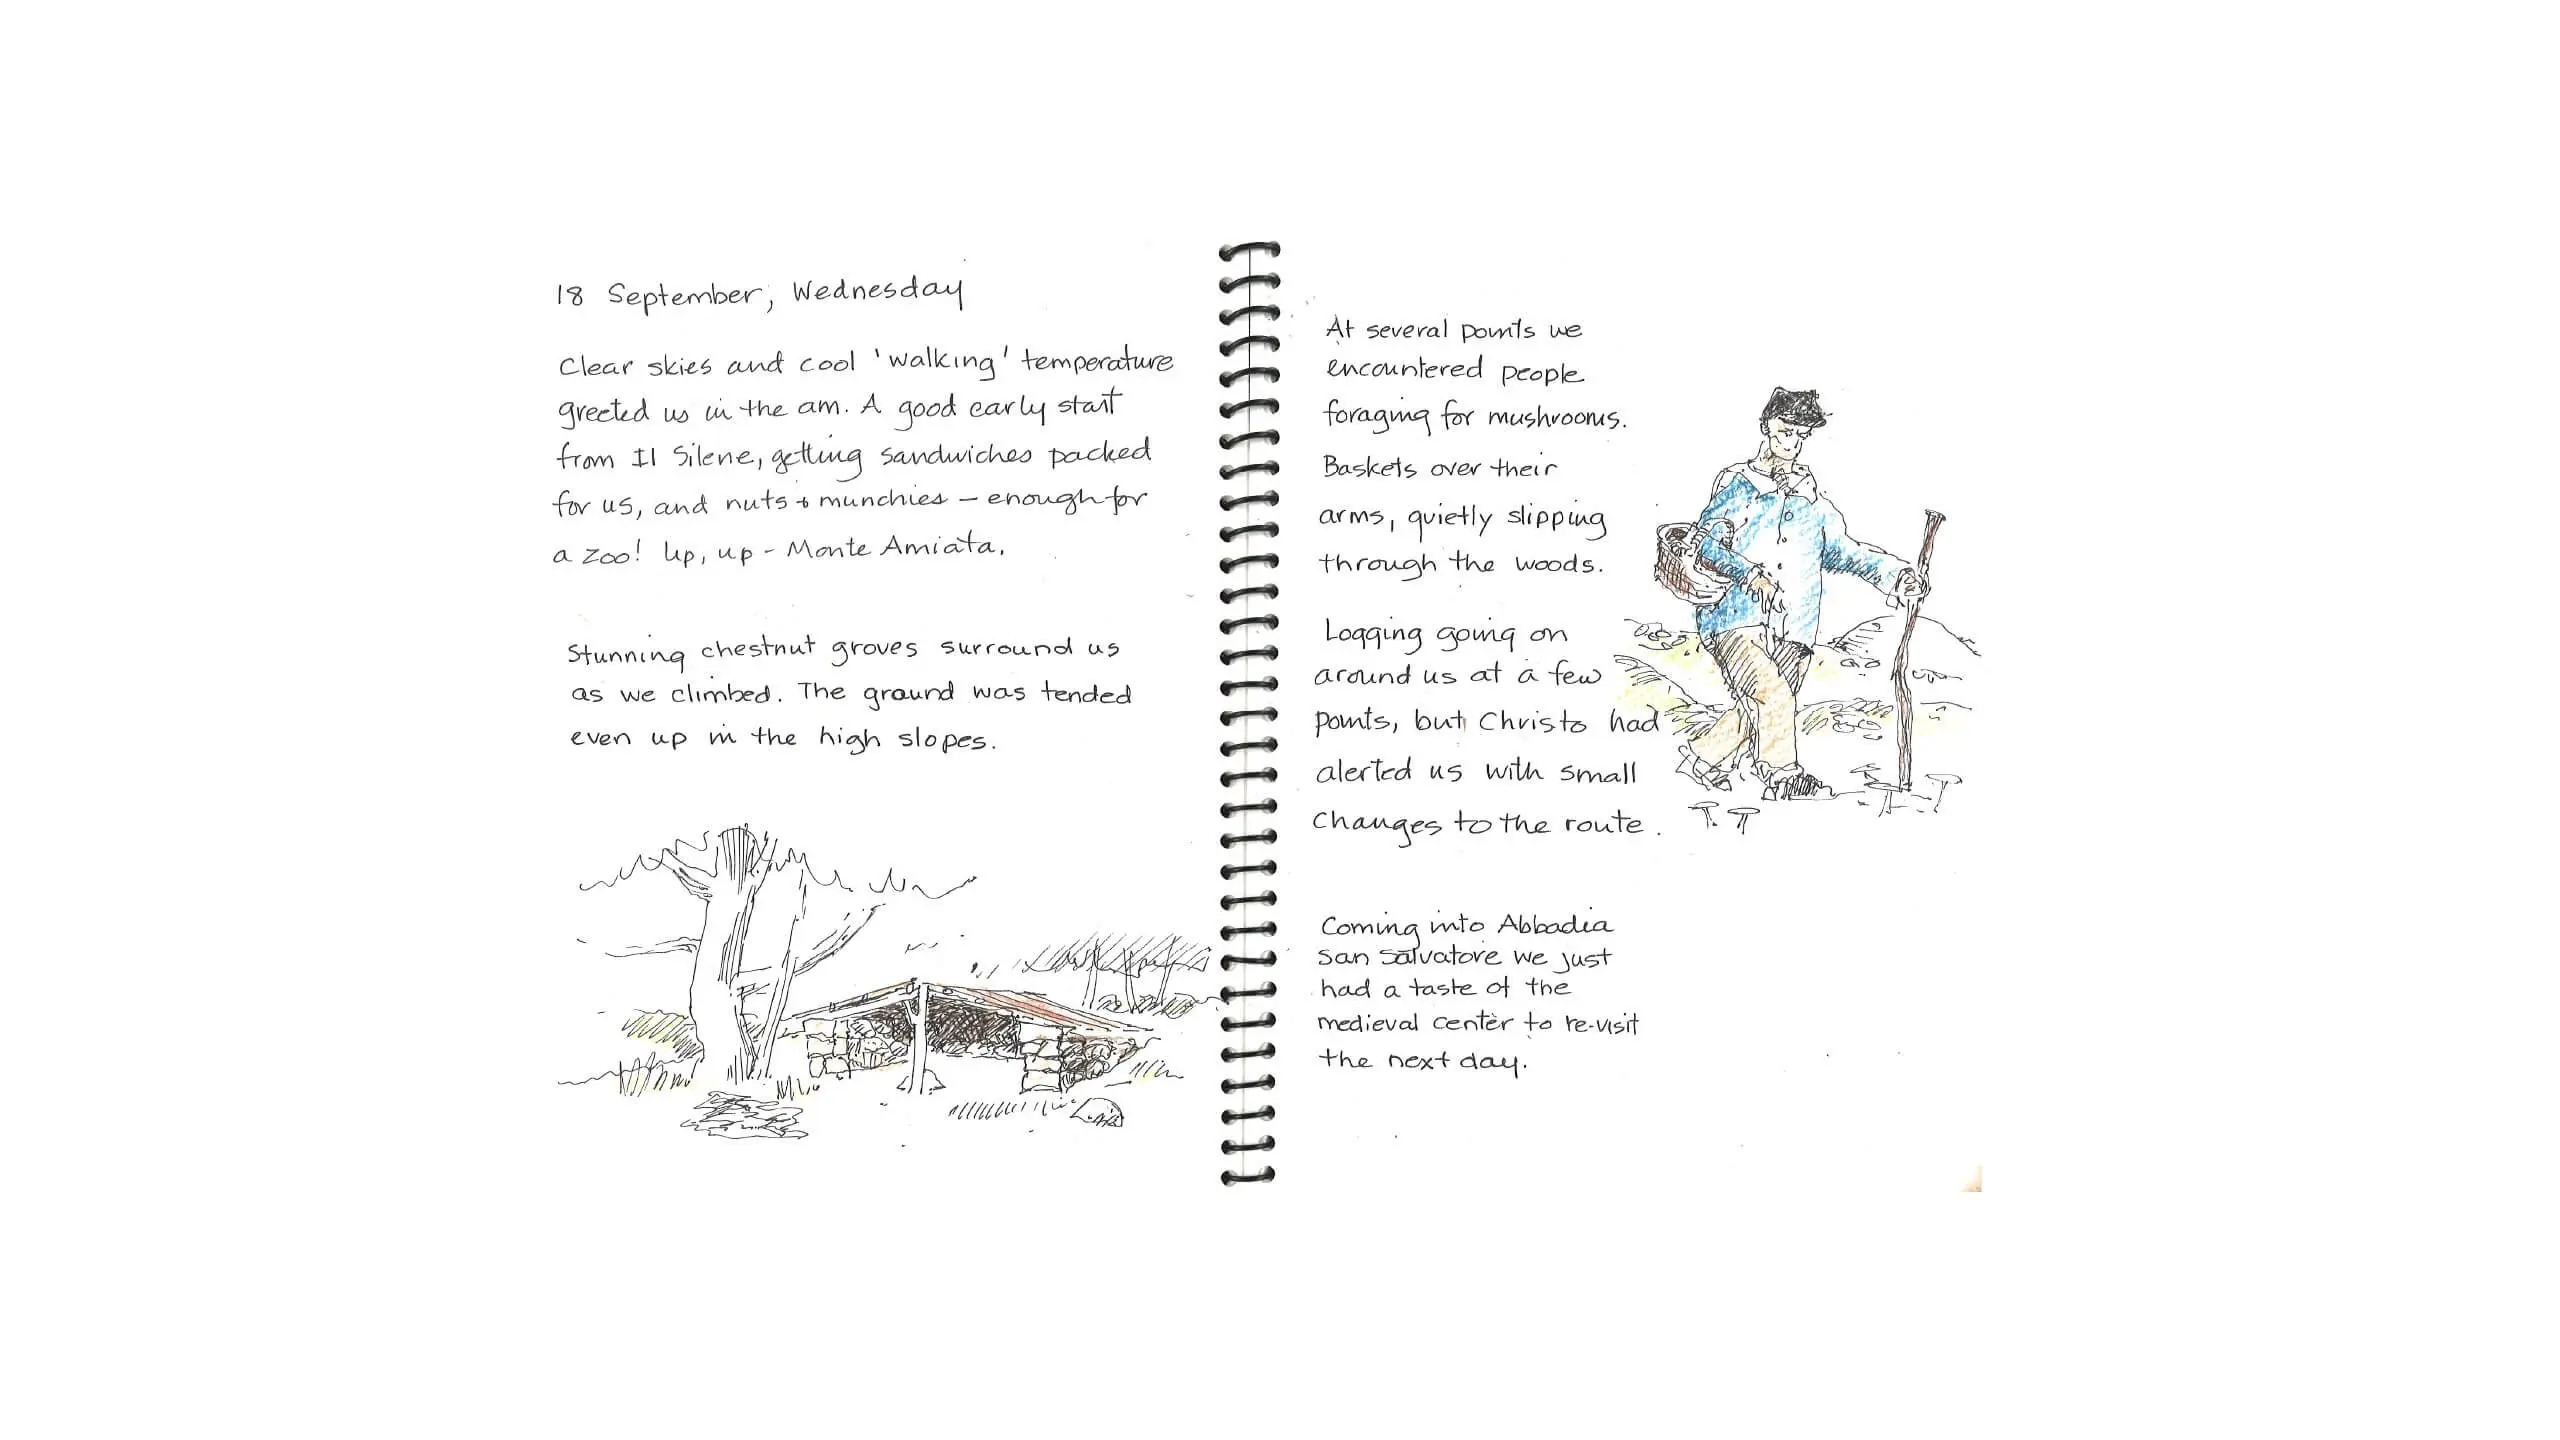 18 September, Wednesday
Clear skies and cool 'walking' temperature
greeted us in the am. A good early start
from Il Silene, getting sandwiches packed
for us, and nuts + munchies – enough for
a zoo! Up, up – Monte Amiata.
Stunning chestnut groves surround us
as we climbed. The ground was tended
even up in the high slopes.
At several points we
encountered people
foraging for mushrooms.
Baskets over their
arms, quietly slipping
through the woods.
Logging going on
around us at a few
points, but Christo had
alerted us with small
changes to the route.
Coming into Abbadia
San Salvatore we just
had a taste of the
medieval center to re-visit
the next day.